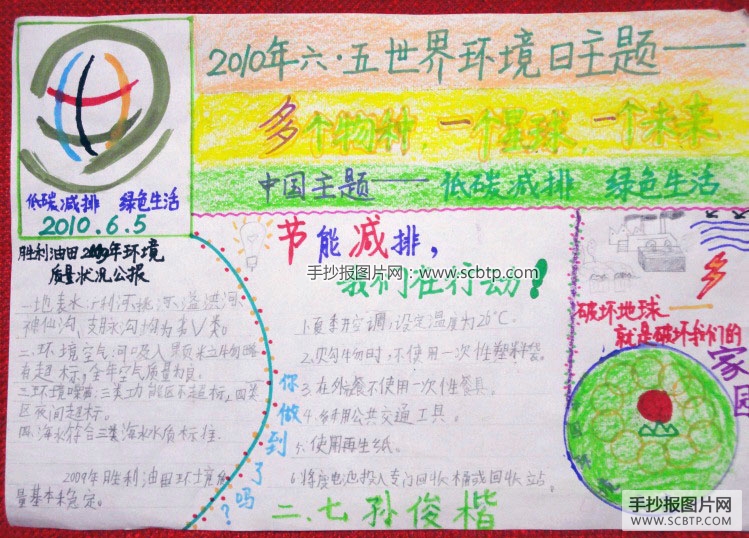 2010年六·五世界环境日主题——
多个物种,一个星球,一个未来
中国主题——低碳减排 绿色生活
低碳减排 绿色生活
2010.6.5
胜利油田2009年环境
质量状况公报
神仙沟、支脉沟均为劣Ⅴ类。
有超标,全年空气质量为良。
三.环境噪声:三类功能区不超标,四类
区夜间超标。
四.海水符合三类海水水质标准.
2009年胜利油田环境质
量基本稳定。
节能减排,
我们在行动!
手抄报图片网:www.scbtp.com
1.夏季开空调,设定温度为26℃.
2.买购物时,不使用一次性塑料袋。
3.在外就餐不使用一次性餐具。
4.多利用公共交通工具。
5.使用再生纸。
6.将废电池投入专门回收桶或回收站。
你做到了吗?
二.七 孙俊楷
多一
破坏地球
就是破坏我们的
家园
手抄报图片网
WWW.SCBTP.COM